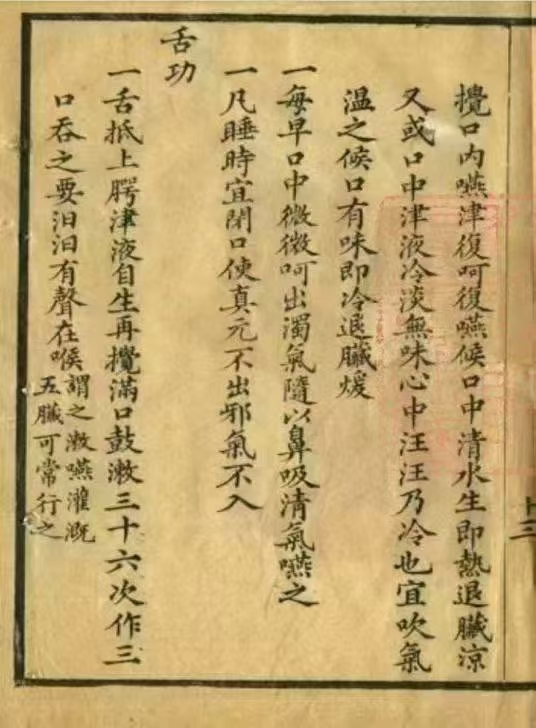 攪口內嚥津復呵復嚥候口中清水生即熱退臟凉
又或口中津液冷淡無味心中汪汪乃冷也宜吹氣
温之候口有味即冷退臟煖
一每早口中微微呵出濁氣隨以鼻吸清氣嚥之
一凡睡時宜閉口使真元不出邪氣不入
舌功
一舌抵上腭津液自生再攪滿口鼓漱三十六次作三
口吞之要汩汩有聲在喉
謂之漱嚥灌溉
五臟可常行之
十三